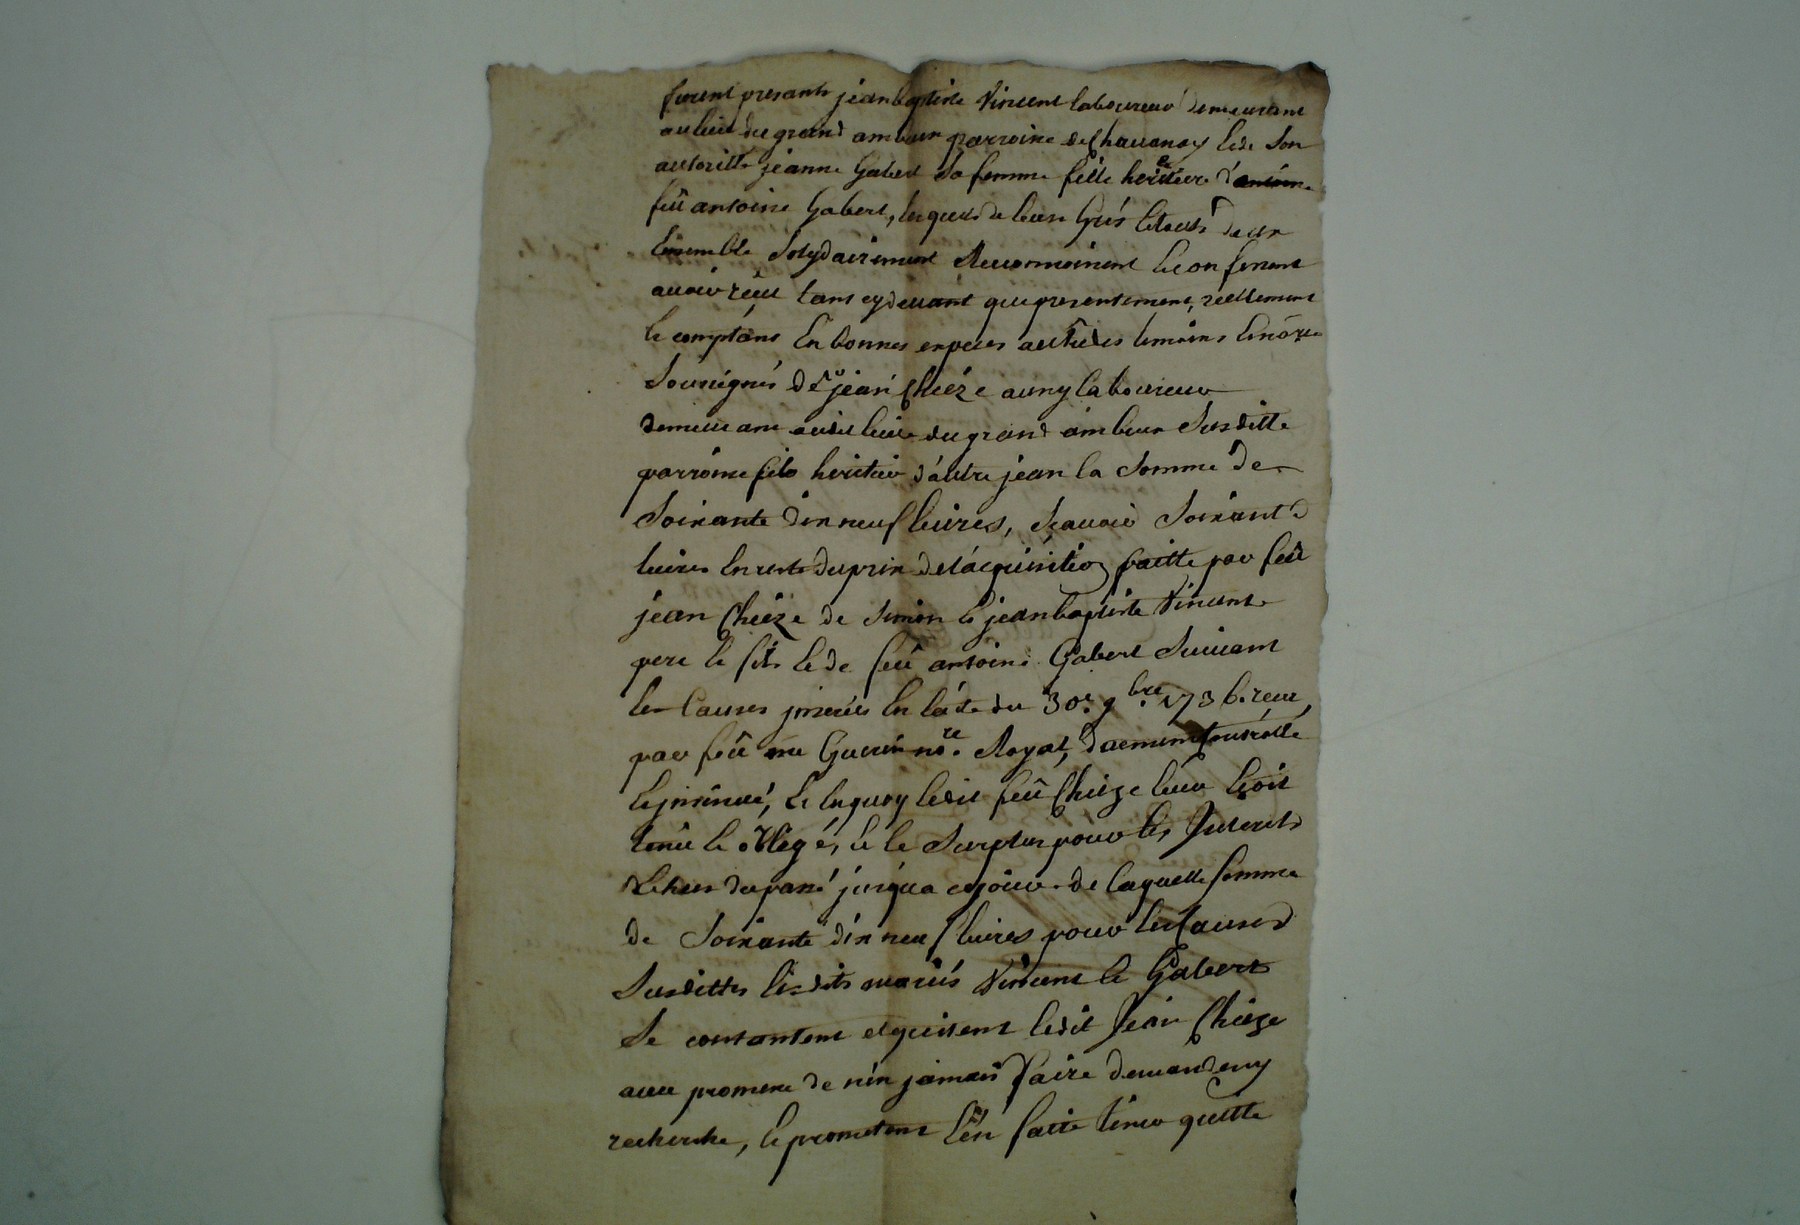 furent presants jean baptiste Vincent laboureur demeurant
au lieu du grand ambeau parroisse de Chavanay & de son
autoritte jeanne Gabert sa femme fille & heritiere d'antoine
feû antoine Gabert, lesquels de leur grés & touts deux
Ensemble Solydairement Reconnoissent & confessent
avoir reçu tant cydevant que presentement, reellement
& comptant En bonnes especes aux temoins & no.re
Sousignés de Sr jean Chieze aussy laboureur
demeurant audit lieu du grand ambeau Susditte
parroisse fils heritier d'autre jean la Somme de
Soixante dix neuf livres, Sçavoir Soixante
livres En reste du prix de l'acquisition faitte par feû
jean Chieze de Simon & jean baptiste Vincent
pere & fils & de feû antoine Gabert Suivant
les Causes inserées En l'acte du 30e 9.bre 1736. receu
par feû me Guerin no.re Royal, duement Controllé
& insinué, & Enquoy ledit feû Chieze leur Etoit
tenû & oblegé, & le Surplus pour les Interets
Echus du passé jusqua ce jour. de laquelle somme
de Soixante dix neuf livres pour les Causes
Susdittes lesdits mariés Vincent & Gabert
Se contantent et quitent ledit Jean Chieze
avec promesse de n'en jamais faire demande ny
recherche, & promettent L'en faire tenir quitte